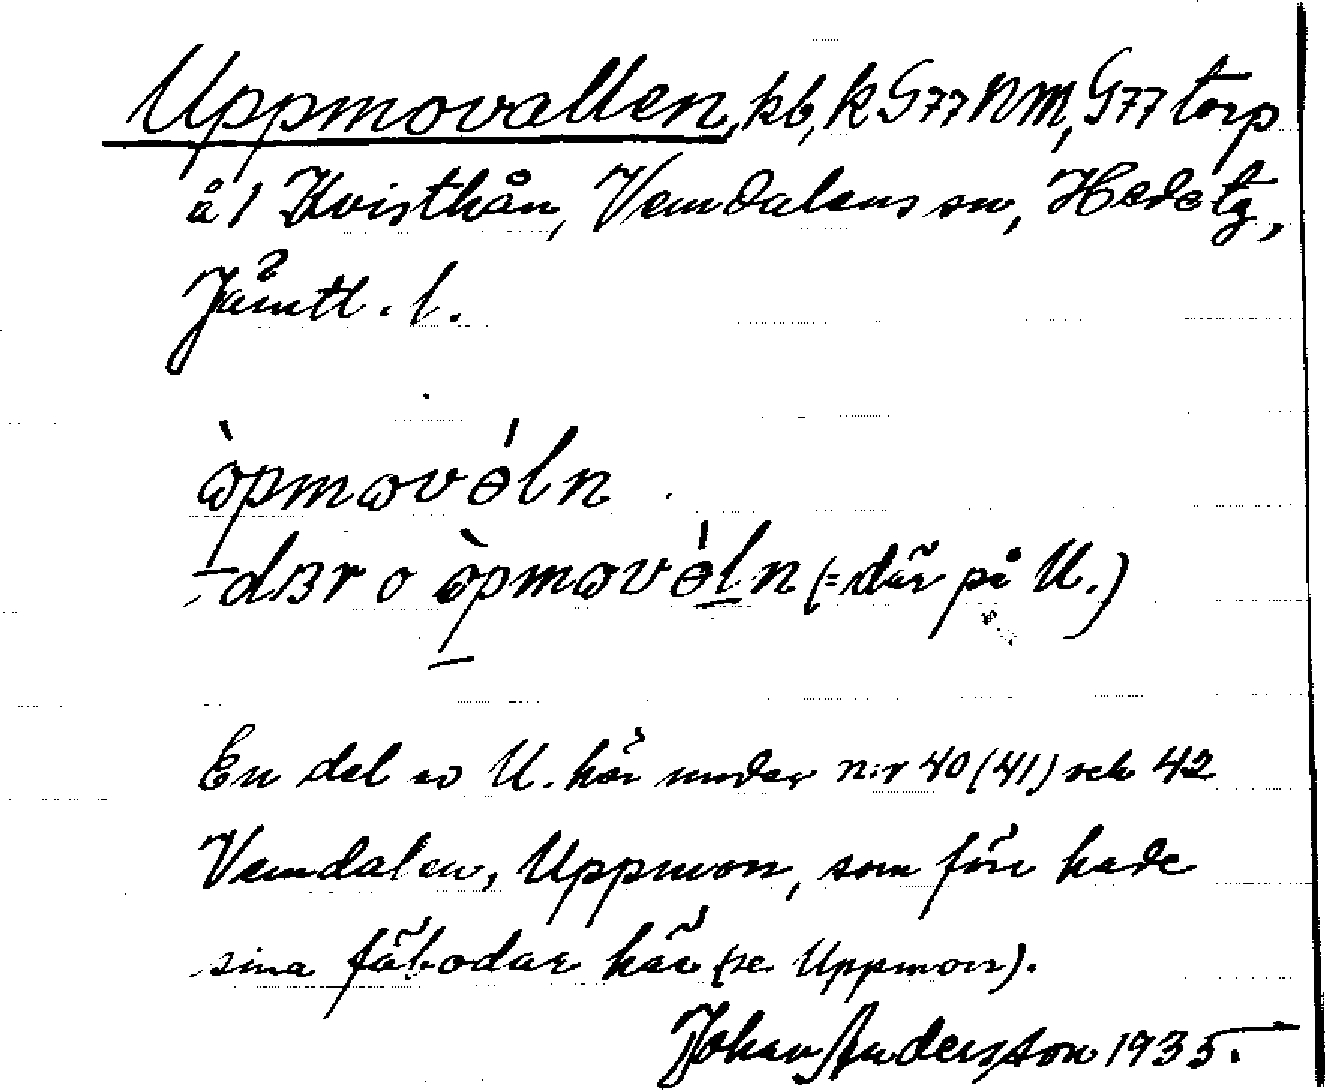 Uppmovallen, kb, k G77 NM, G77 torp
å 1 Kvisthån, Vemdalens sn, Hede tg,
Jämtl. l.
ɷ̀pmɷvɵ́ln
-dɜr o ɷ̀pmɷvɵ́ln (= där på U.)
En del av U. hör under n:r 40 (41) och 42
Vemdalen, Uppmon, som förr hade
sina fäbodar här (se Uppmon).
Johan Andersson 1935.